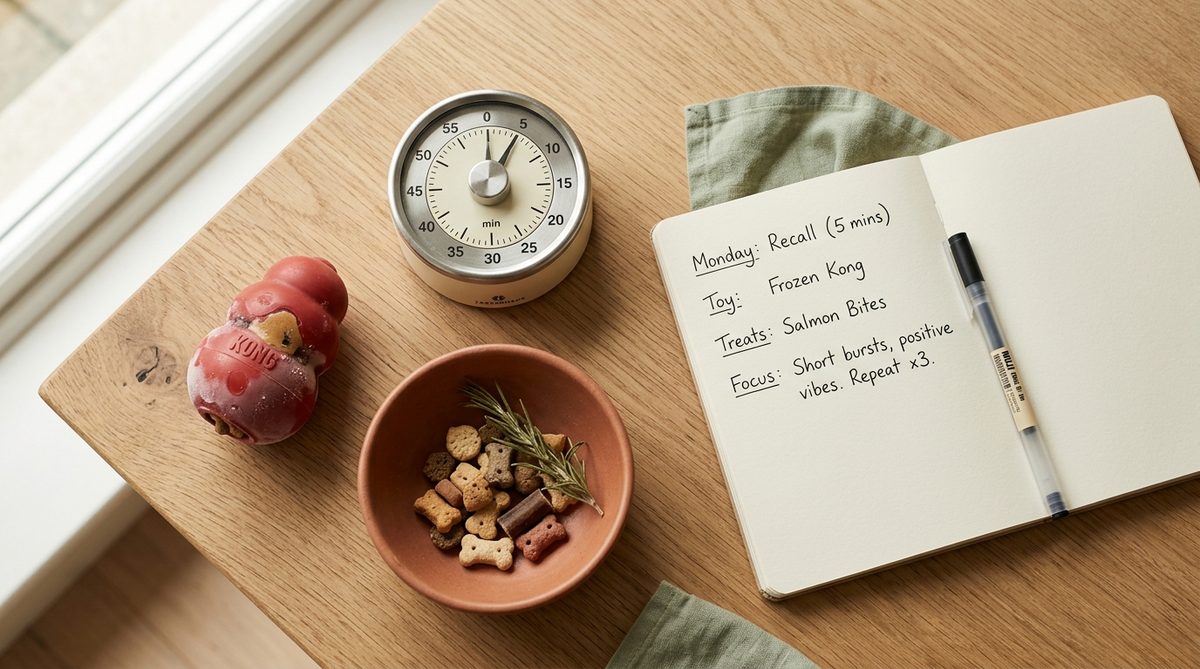 55 0 5
50 10
45 15
40 20
35 25
30
min
KONG
Monday: Recall (5 mins)
Toy: Frozen Kong
Treats: Salmon Bites
Focus: Short bursts, positive
vibes. Repeat ×3.